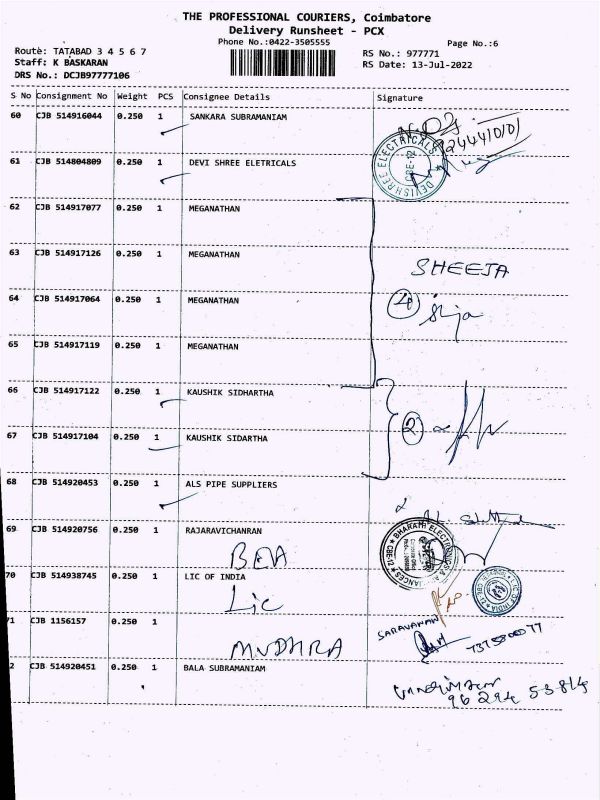 THE PROFESSIONAL COURIERS, Coimbatore
Delivery Runsheet - PCX
Phone No.:0422-3505555
Page No.:6
Route: TATABAD 3 4 5 6 7
RS No.: 977771
Staff: K BASKARAN
RS Date: 13-Jul-2022
DRS No.: DCJB97777106
S No Consignment No Weight PCS Consignee Details Signature
60 CJB 514916044 0.250 1 SANKARA SUBRAMANIAM
61 CJB 514804809 0.250 1 DEVI SHREE ELETRICALS
DEVISHREE ELECTRICALS
CBE-12
62 CJB 514917077 0.250 1 MEGANATHAN
63 CJB 514917126 0.250 1 MEGANATHAN
SHEEJA
64 CJB 514917064 0.250 1 MEGANATHAN
4
65 CJB 514917119 0.250 1 MEGANATHAN
66 CJB 514917122 0.250 1 KAUSHIK SIDHARTHA
2
67 CJB 514917104 0.250 1 KAUSHIK SIDARTHA
68 CJB 514920453 0.250 1 ALS PIPE SUPPLIERS
69 CJB 514920756 0.250 1 RAJARAVICHANRAN
BEA
BHARATH ELECTRONICS & APPLIANCES
CBE-12
70 CJB 514938745 0.250 1 LIC OF INDIA
Lic
LIC OF INDIA
71 CJB 1156157 0.250 1
MUDHRA
SARAVANAN
2 CJB 514920451 0.250 1 BALA SUBRAMANIAM
96294 53814